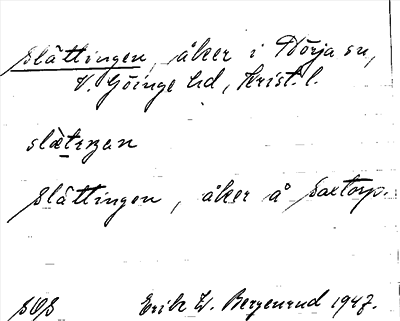 Slättingen, åker i Nörja sn,
V. Göinge hd, Krist. l.
slätꞮŋen
Slättingen, åker å Saxtorp.
SOS Erik W. Bergenrud 1947.